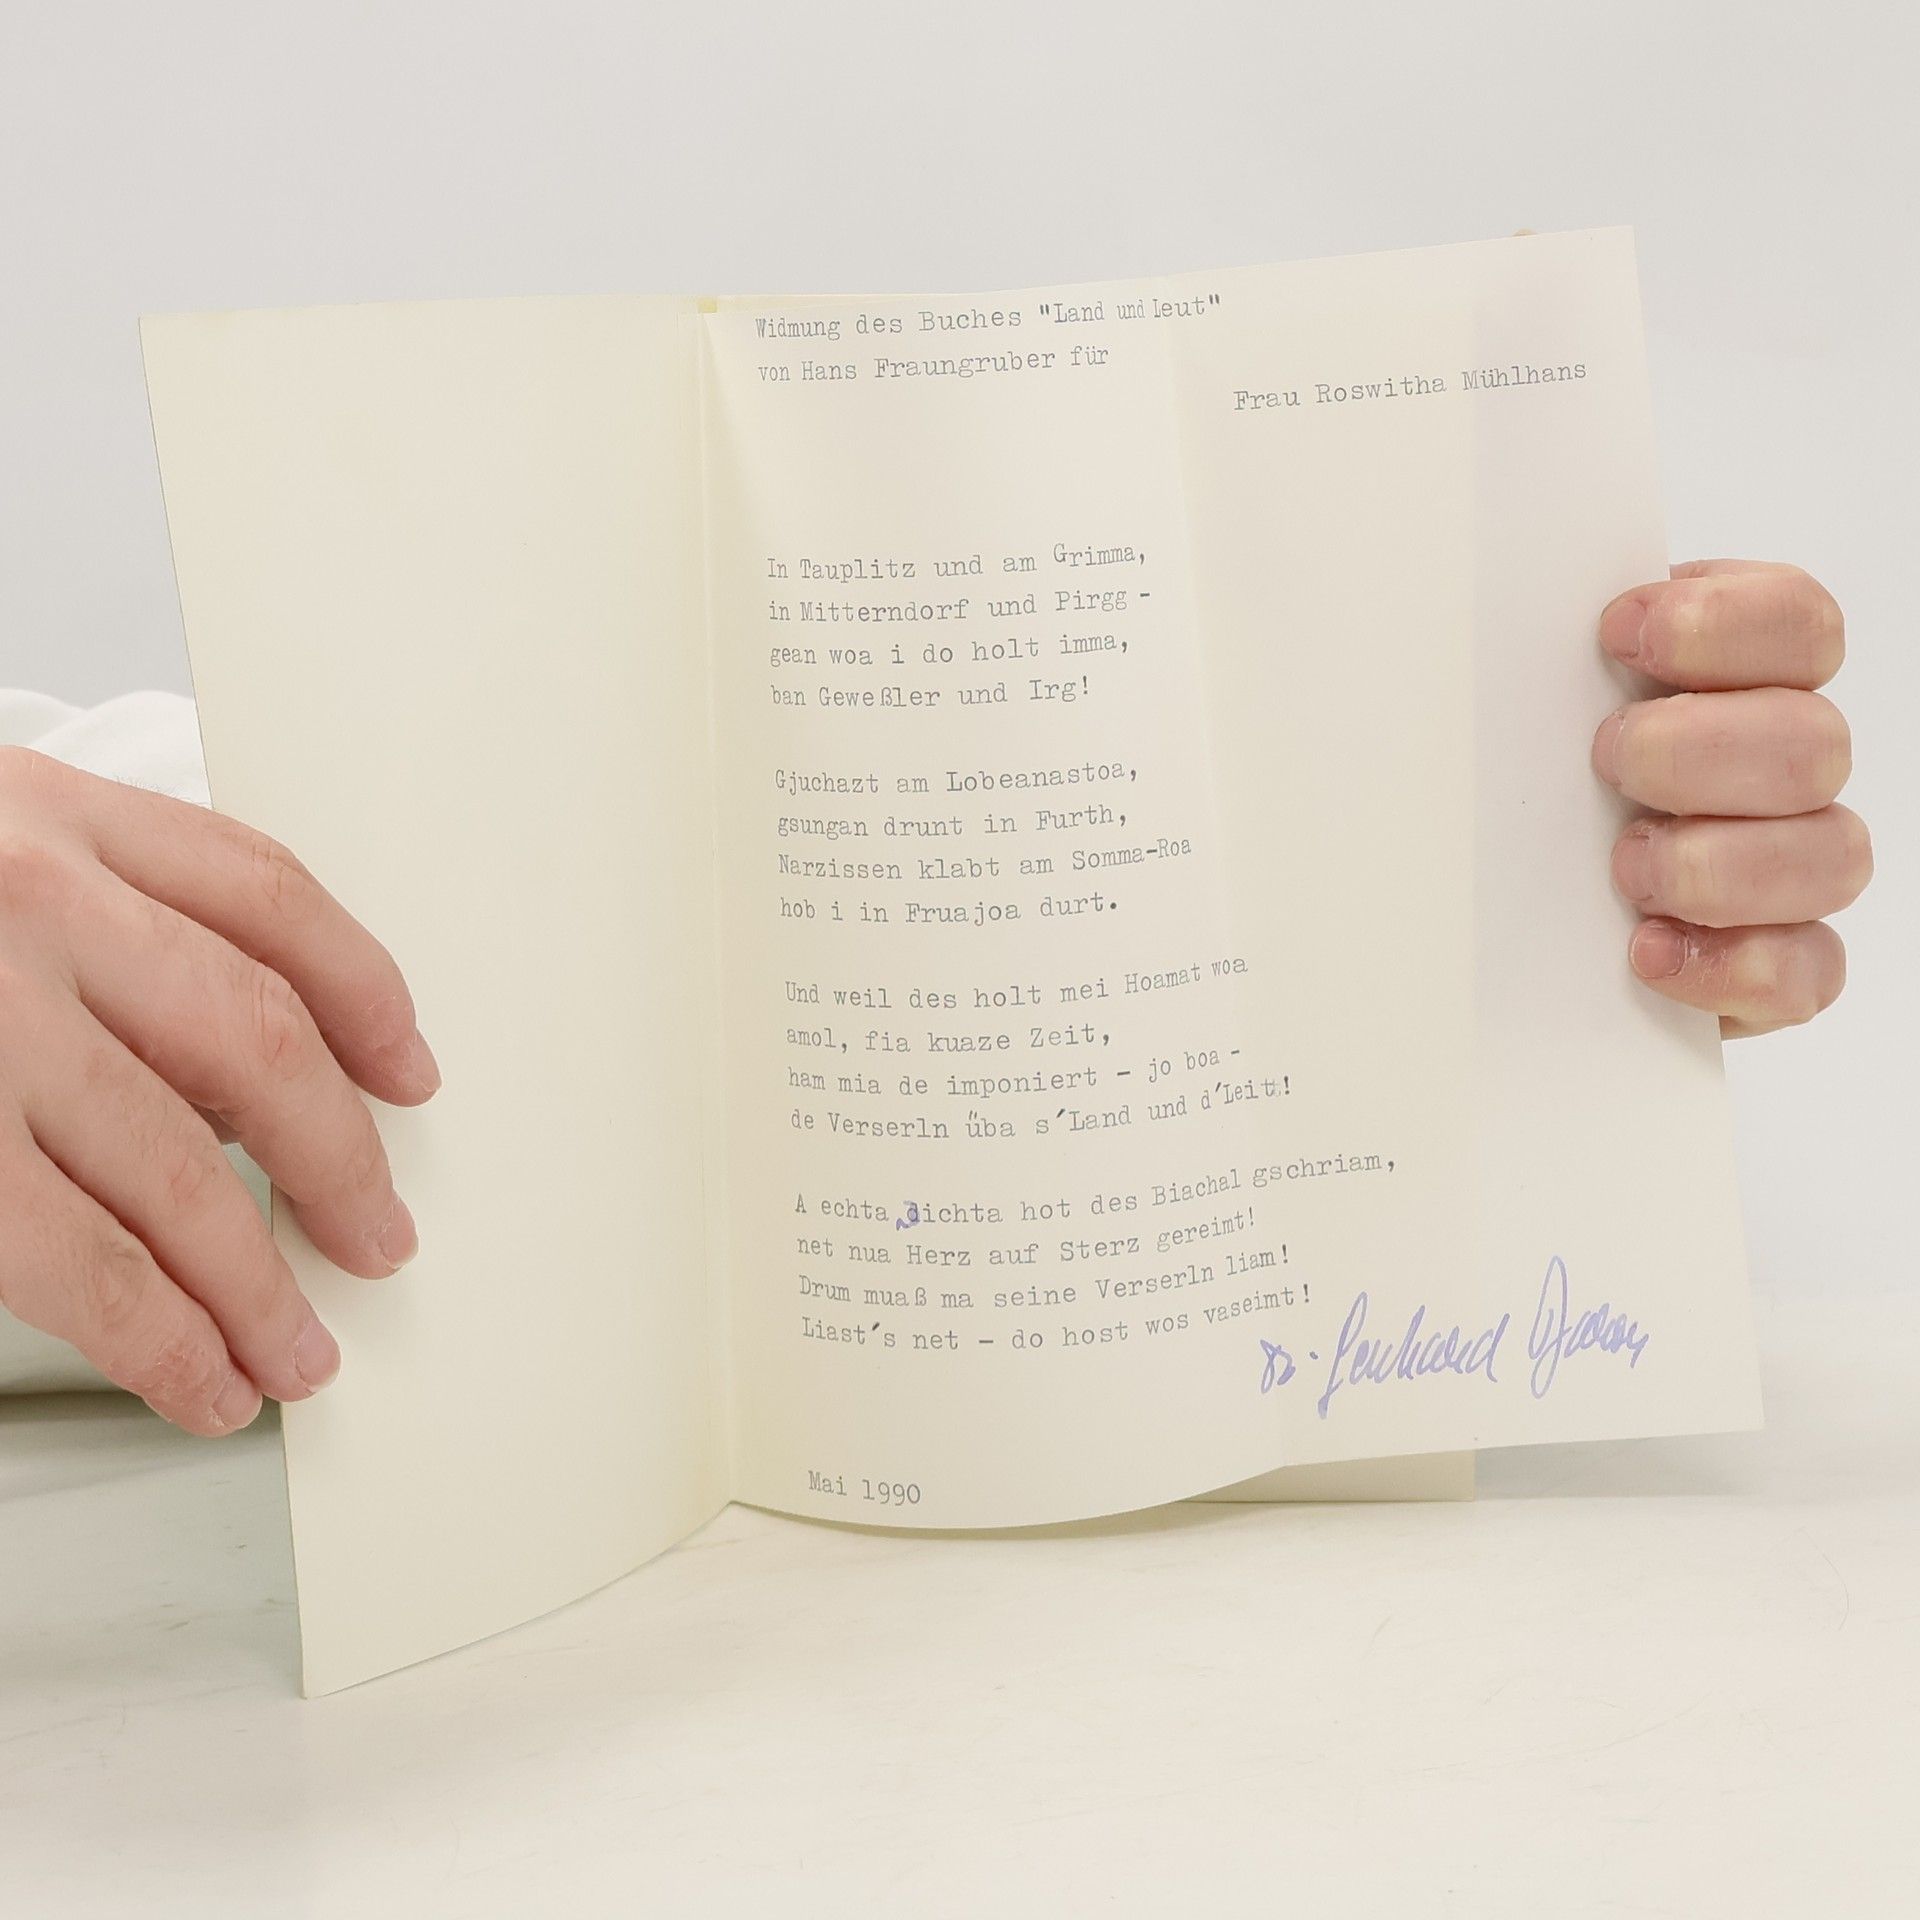 Widmung des Buches "Land und Leut"
von Hans Fraungruber für
Frau Roswitha Mühlhans
In Tauplitz und am Grimma,
in Mitterndorf und Pirgg -
gean woa i do holt imma,
ban Geweßler und Irg!
Gjuchazt am Lobeanastoa,
gsungan drunt in Furth,
Narzissen klabt am Somma-Roa
hob i in Fruajoa durt.
Und weil des holt mei Hoamat woa
amol, fia kuaze Zeit,
ham mia de imponiert - jo boa -
de Verserln üba s´Land und d´Leit!
A echta dichta hot des Biachal gschriam,
net nua Herz auf Sterz gereimt!
Drum muaß ma seine Verserln liam!
Liast´s net - do host wos vaseimt!
Dr.
Mai 1990